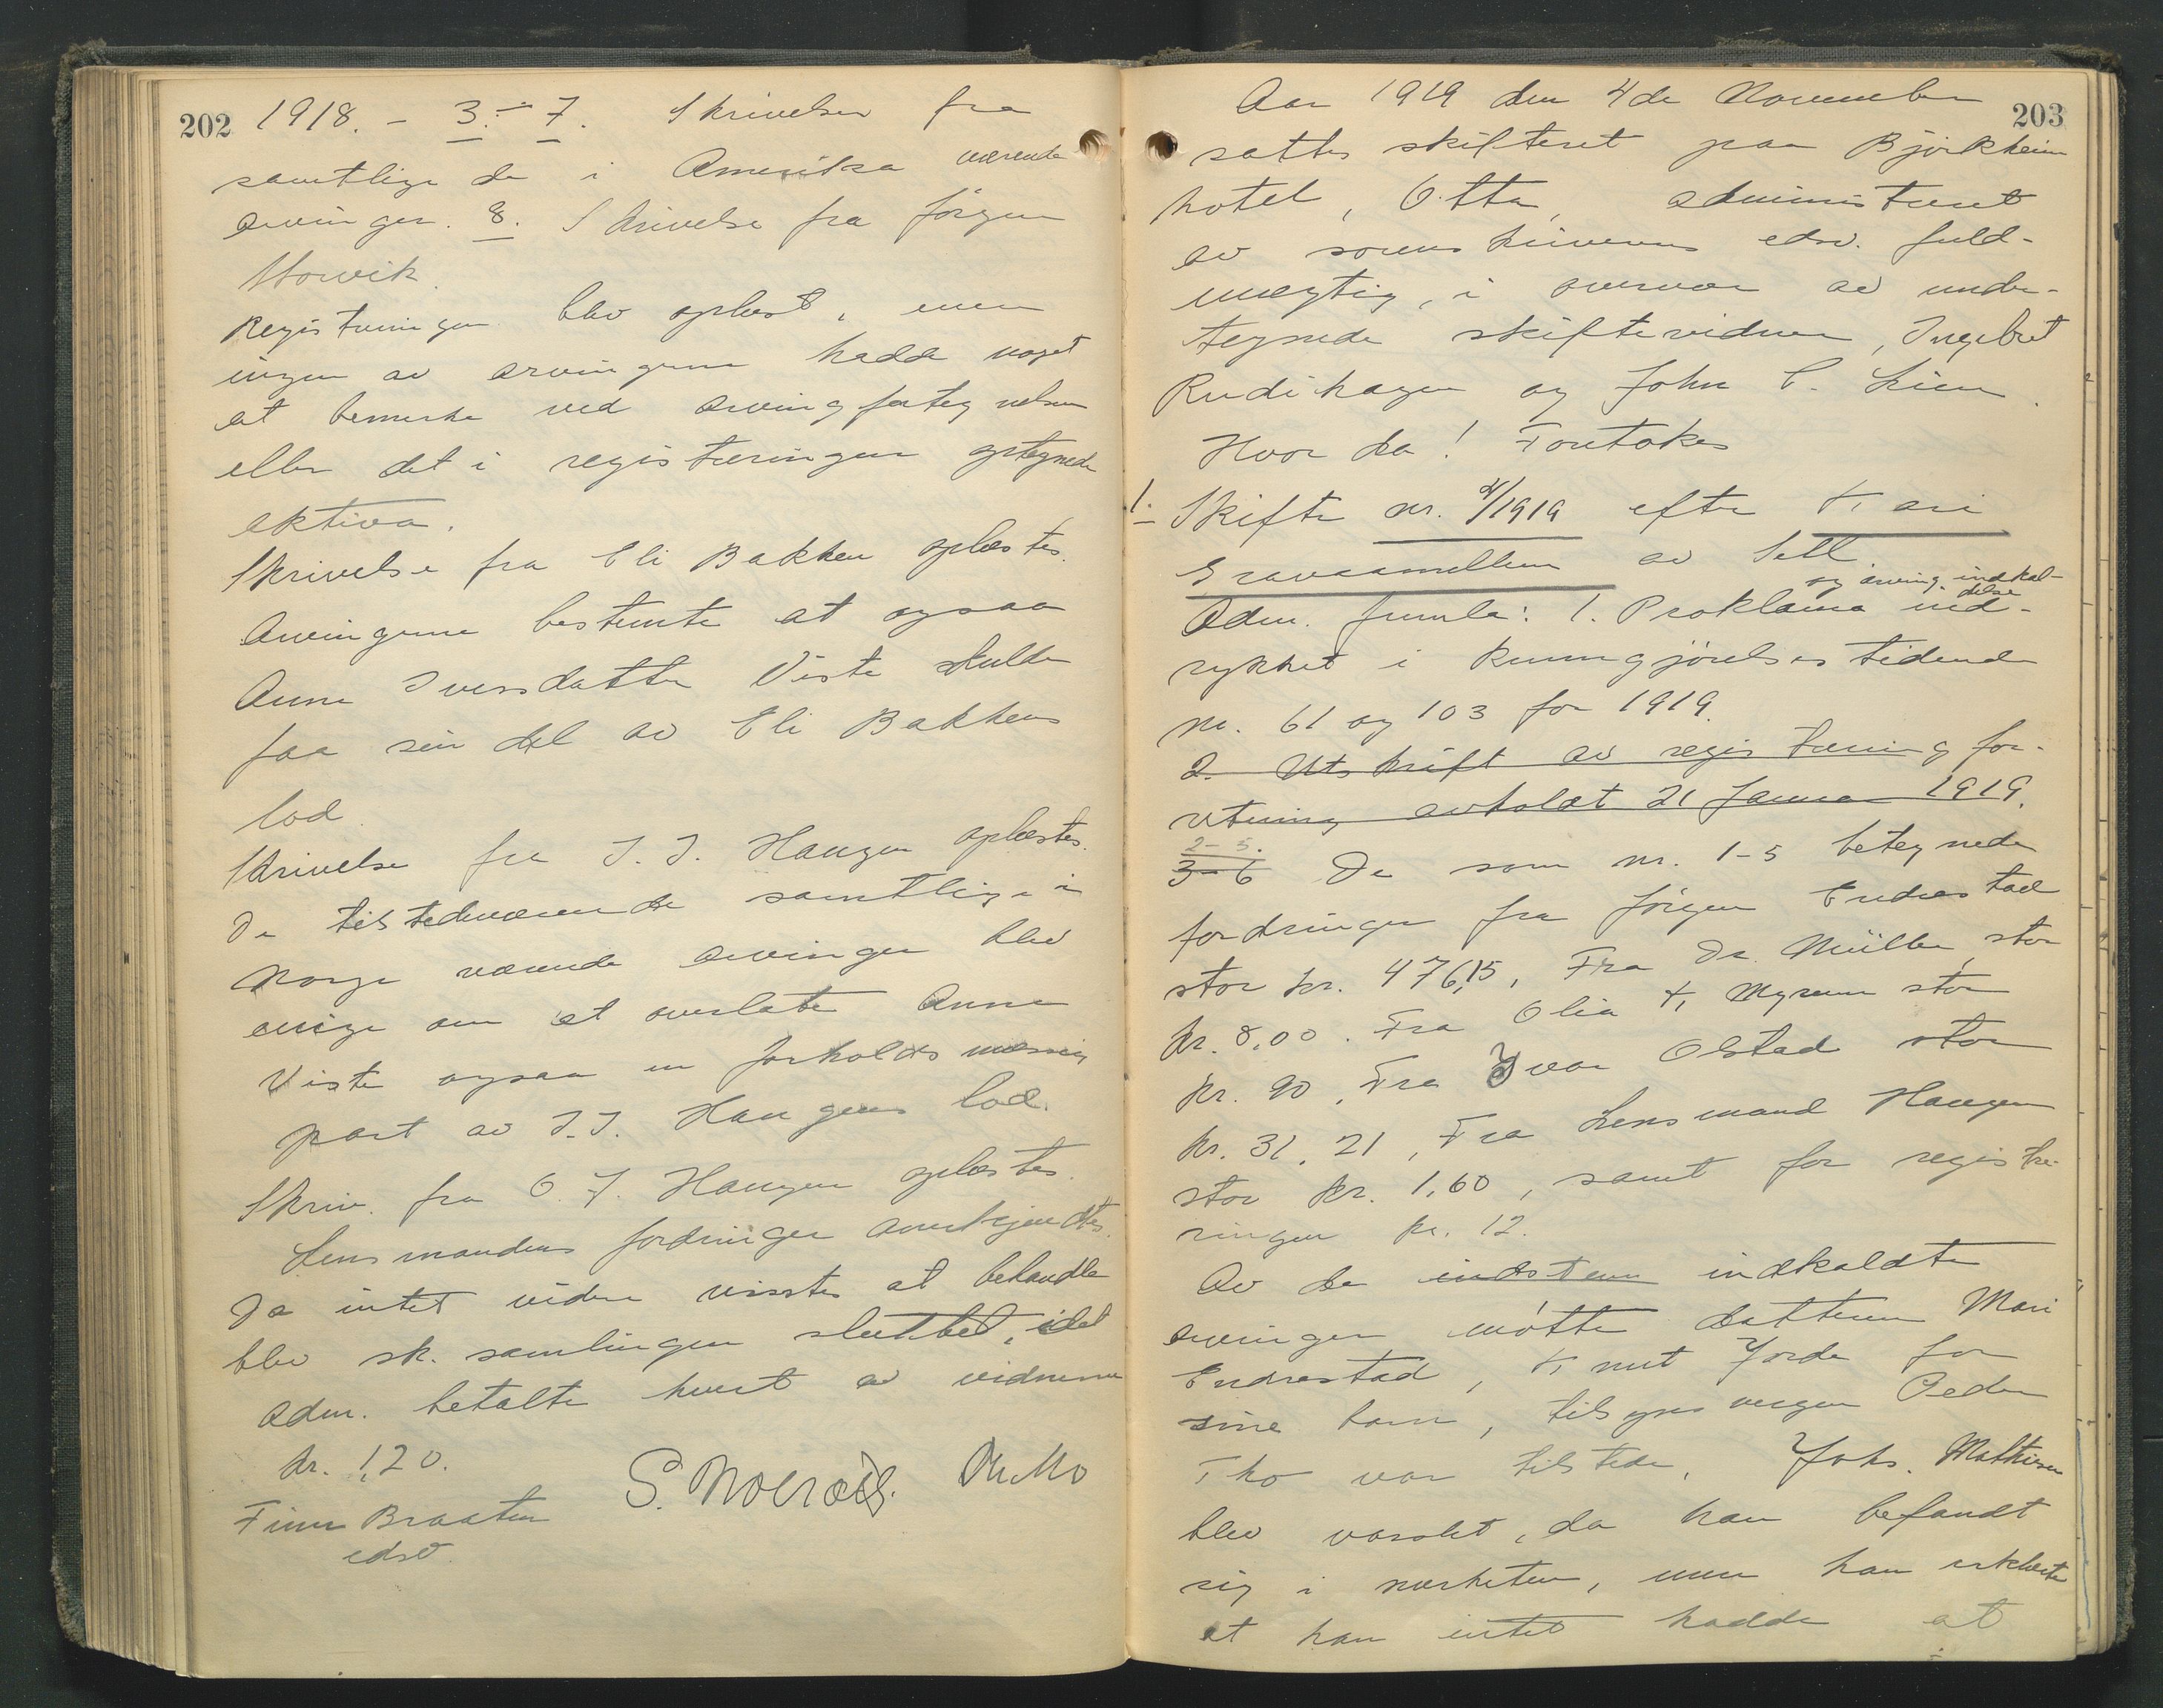 202 1918. - 3. - 7. Skrivelser fra
samtlige de i Amerika værende
arvinger. 8. Skrivelse fra Jörgen
Storvik.
Registreringen blev oplæst, men
ingen av arvingerne hadde noget
at bemerke ved arvingfortegnelsen
eller det i registreringen optegnede
aktiva.
Skrivelse fra Eli Bakken oplæstes.
Arvingerne bestemte at ogsaa
Anne Iversdatter Viste skulde
faa sin del av Eli Bakkens
lod.
Skrivelse fra I. I. Haugen oplæstes.
De tilstedeværende samtlige i
Norge værende arvinger blev
enige om at overlate Anne
Viste ogsaa en forholdsmæssig
part av I. I. Haugens lod.
Skriv. fra O. J. Haugen oplæstes.
Lensmandens fordringer anerkjendtes.
Da intet videre visstes at behandle
blev sk. samlingen sluttet, idet
adm. betalte hvert av vidnerne
kr. 1,20.
Finn Braaten
edsv.
203
Aar 1919 den 4de November
sattes skifteret paa Björkheim
hotel, Otta, administreret
av sorenskriverens edsv. fuld-
mægtig, i overvær av under-
tegnede skiftevidner, Ingebret
Rudihagen og John C. Lien.
Hvor da! Foretokes
1. Skifte nr. 4/1919 efter Kari
Gravaamellem av Sell
og arving indkal-
delse
Adm. fremla: 1. Proklama ind-
rykket i Kunngjörelsestidende
nr. 61 og 103 for 1919.
2. Utskrift av registreringsfor-
retning avholdt 21 Januar 1919.
2-5.
3-6 De som nr. 1-5 betegnede
fordringer fra Jörgen Endrestad
stor kr. 476,15, Fra Dr. Müller, stor
kr. 8,00. Fra Olia K. Myrum stor
kr. 90, Fra Ivar Olstad stor
kr. 31,21, Fra Lensmand Haugen
stor kr. 1,60, samt for registre-
ringen kr. 12.
Av de indstem indkaldte
arvinger mötte datteren Mari
Endrestad, Knut Jorde for
sine barn, tilsynsvergen Peder
Tho var tilstede, Johs. Mathisen
blev varslet, da han befandt
sig i nærheten, men han erklærte
at han intet hadde at